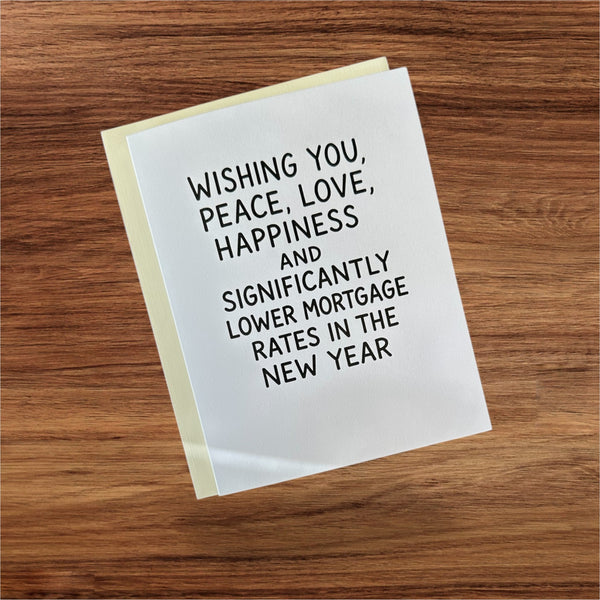 WISHING YOU,
PEACE, LOVE,
HAPPINESS
AND
SIGNIFICANTLY
LOWER MORTGAGE
RATES IN THE
NEW YEAR